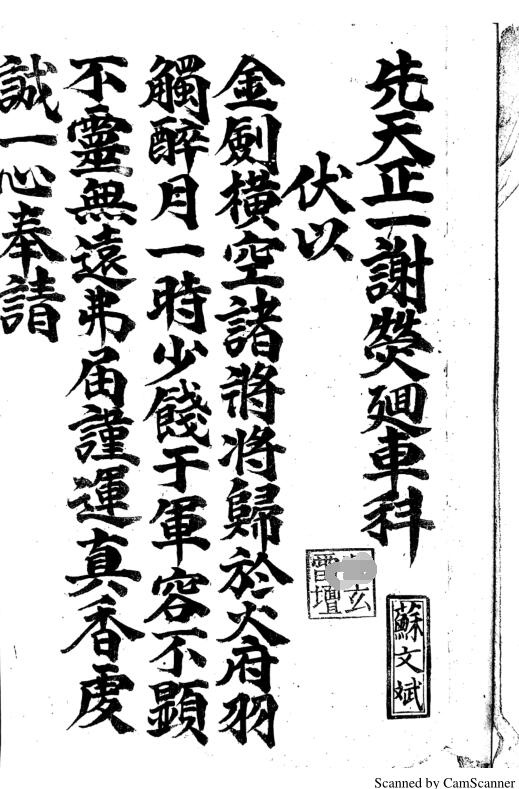 先天正一謝熒廻車科
伏以
金劍橫空諸將將歸於火府羽
觴醉月一時少餞于軍容不顯
不靈無遠弗届謹運真香虔
誠一心奉請
玄
雷壇
蘇文斌
Scanned by CamScanner